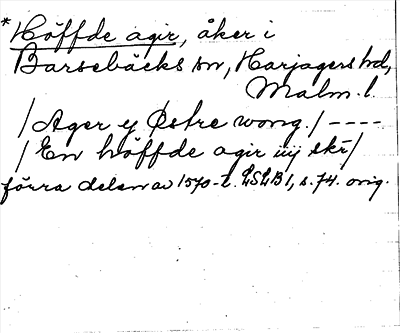 *Höffde agir, åker i
Barsebäcks sn, Harjagers hd,
Malm. l.
/Ager y Østre wong./ ----
/En höffde agir iiij skr/
förra delen av 1570-t. LSLB 1, s. 74. orig.